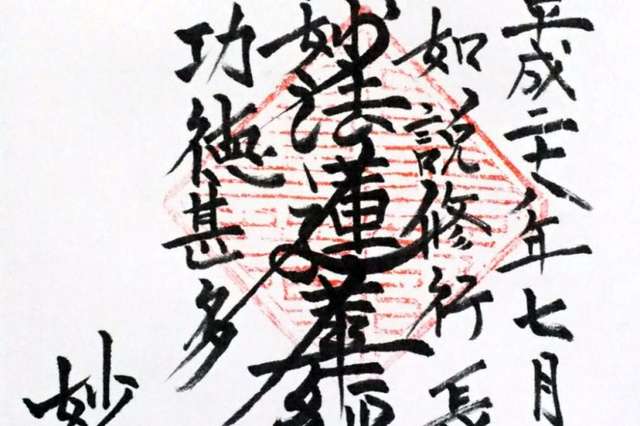 平成二十八年七月
如説修行長
妙法蓮華經
功徳甚多
妙